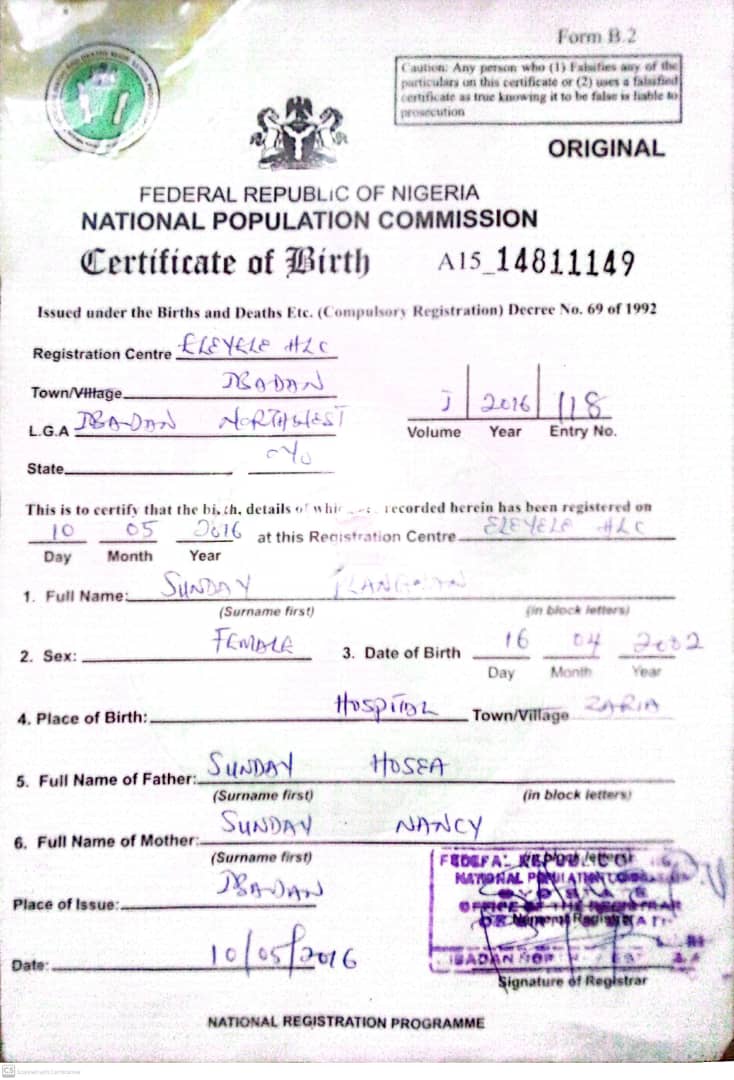 Form B.2
Caution: Any person who (1) Falsifies any of the
particulars on this certificate or (2) uses a falsified
certificate as true knowing it to be false is liable to
prosecution
ORIGINAL
FEDERAL REPUBLIC OF NIGERIA
NATIONAL POPULATION COMMISSION
Certificate of Birth A15_14811149
Issued under the Births and Deaths Etc. (Compulsory Registration) Decree No. 69 of 1992
Registration Centre ELEYELE HLC
Town/Village IBADAN
L.G.A IBADAN NORTHWEST
I 2016 118
Volume Year Entry No.
State OYO
This is to certify that the birth, details of which are recorded herein has been registered on
10 05 2016 at this Registration Centre ELEYELE HLC
Day Month Year
1. Full Name: SUNDAY
(Surname first) (in block letters)
2. Sex: FEMALE 3. Date of Birth 16 04 2002
Day Month Year
4. Place of Birth: HOSPITAL Town/Village ZARIA
5. Full Name of Father: SUNDAY HOSEA
(Surname first) (in block letters)
6. Full Name of Mother: SUNDAY NANCY
(Surname first) (in block letters)
Place of Issue: IBADAN
NATIONAL POPULATION
OFFICE OF THE REGISTRAR
Name of Registrar
Date: 10/05/2016
IBADAN
Signature of Registrar
NATIONAL REGISTRATION PROGRAMME
CS Scanned with CamScanner